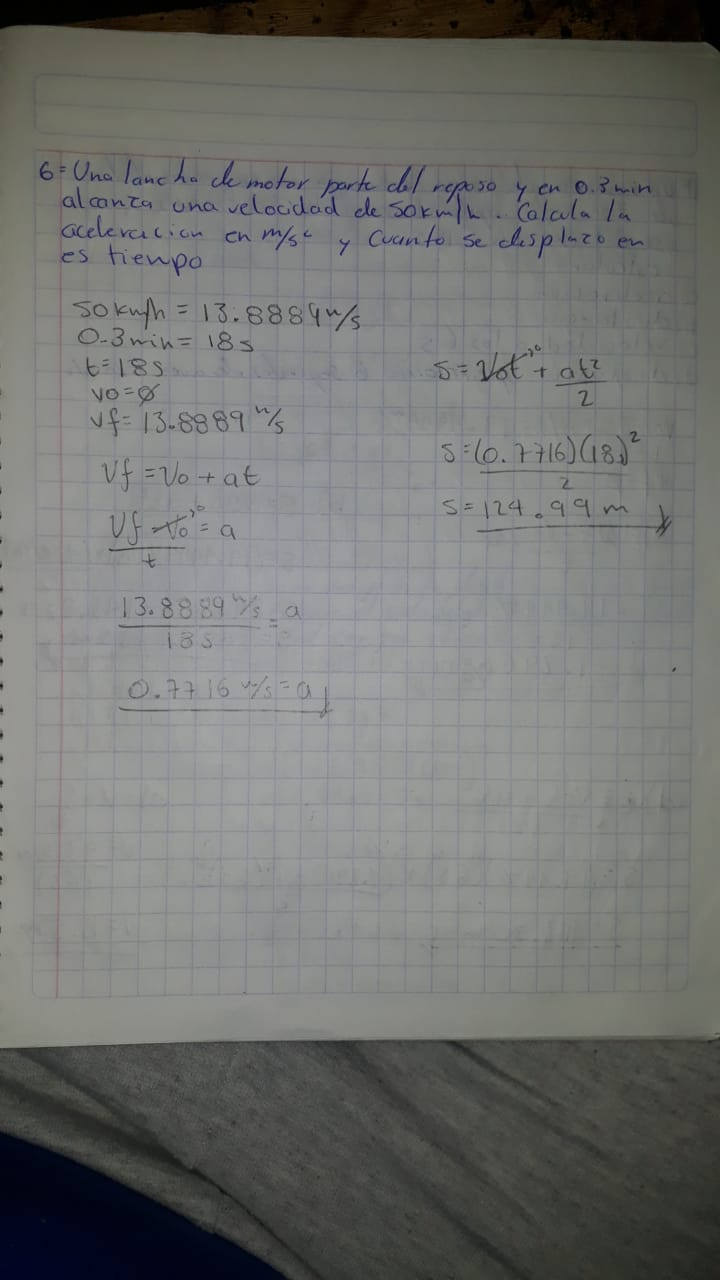 6= Una lancha de motor parte del reposo y en 0.3 min
alcanza una velocidad de 50km/h. Calcula la
aceleracion en m/s² y Cuanto se desplazo en
es tiempo
50 km/h = 13.8889 m/s
0.3 min = 18 s
t= 18 s
vo=Ø
vf= 13.8889 m/s
Vf = Vo + at
Vf - Vo = a
t
13.8889 m/s = a
18 s
0.7716 m/s = a
S = Vot + at²
2
S = (0.7716)(18)²
2
S = 124.99 m